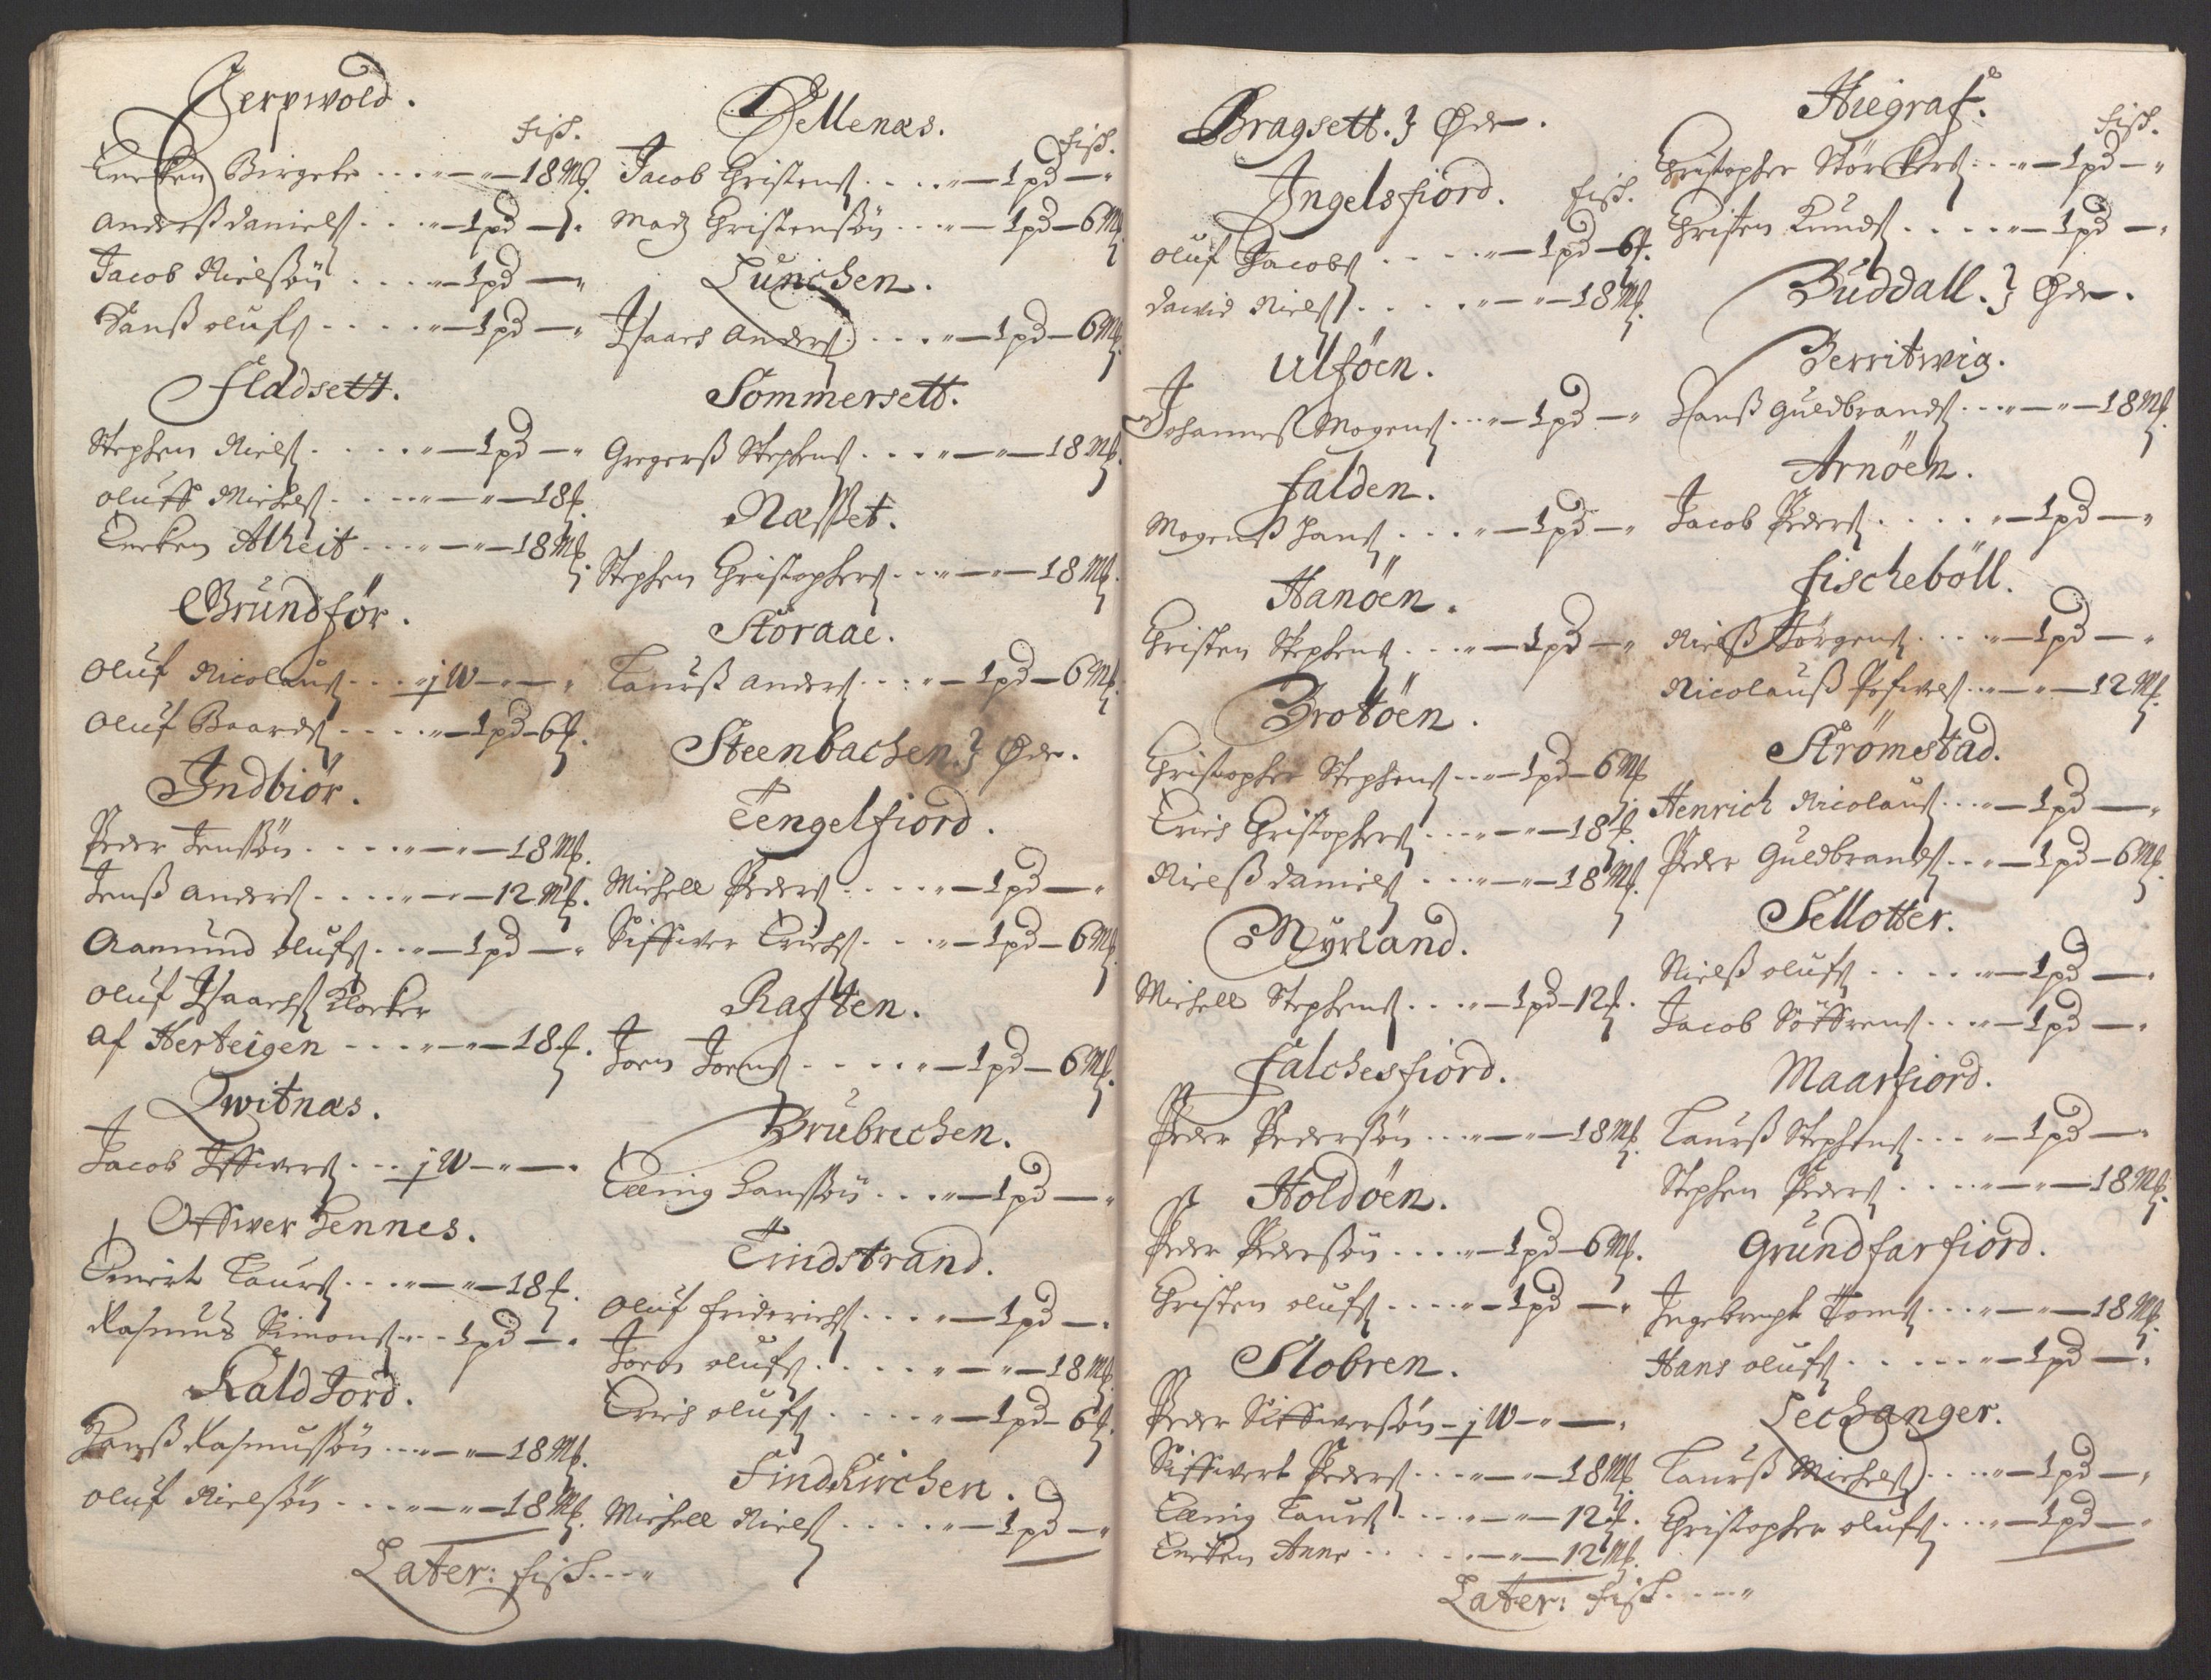 Jerpwold.
fisk.
Encken Birgete - - - 18 Mk.
Anderss Daniels. - - 1 pd -
Jacob Nielssøn - - - 1 pd -
Hanss olufs - - - 1 pd -
Fladsett.
Stephen Niels. - - - 1 pd -
oluff Michels. - - - 18 f.
Encken Alheit - - - 18 Mk.
Grundför.
Oluf Nicolaus. - - j W - -
Oluf Baards. - - - 1 pd - 6 f.
Indbiör.
Peder Jenssøn. - - - 18 Mk.
Jenss Anders. - - - 12 Mk.
Aamund olufs. - - 1 pd -
oluf Isaachs Klocker
af Herteigen - - - 18 f.
Qwitnæs.
Jacob Iffwers. - - j W - -
Offwer Hennes.
Ewert Laurs. - - - 18 f.
Rasmus Simons. - - 1 pd -
Kald Jord.
Hanss Rasmussøn. - - 18 Mk.
oluf Nielssøn - - - 18 Mk.
Later: fisk. - - -
Hellenæs.
fisk.
Jacob Christens. - - - 1 pd -
Madz Christenssøn. - - 1 pd - 6 Mk.
Lunchen.
Isaach Anders. - - - 1 pd - 6 Mk.
Sommersett.
Gregerss Stephens. - - - 18 Mk.
Næsset.
Stephen Christophers. - - - 18 Mk.
Storaae.
Laurss Anders. - - 1 pd - 6 Mk.
Steenbachen.} Øde.
Tengelfiord.
Michell Peders. - - - 1 pd -
Siffwer Erichs. - - 1 pd - 6 Mk.
Raften.
Joen Joens. - - - 1 pd - 6 Mk.
Brubrechen.
Elling Hanssøn. - - 1 pd -
Tindstrand.
Oluf Friderichs. - - - 1 pd -
Joen olufs. - - - 18 Mk.
Erich olufs. - - - 1 pd - 6 f.
Findkirchen.
Michell Niels. - - - 1 pd -
Bragsett.} Øde.
Ingelsfiord. fisk.
oluf Jacobs. - - - 1 pd - 6 f.
Dawid Niels. - - - 18 Mk.
Ulföen.
Johanness Mogens. - - 1 pd -
Falden.
Mogenss Hans. - - - 1 pd -
Hanöen.
Christen Stephens. - - - 1 pd -
Brotöen.
Christopher Stephens. - - 1 pd - 6 Mk
Erich Christophers. - - - 18 f.
Nielss Daniels. - - - 18 Mk.
Myrland.
Michell Stephens. - - - 1 pd - 12 f.
Falchesfiord.
Peder Pederssøn. - - - 18 Mk.
Holdöen.
Peder Pederssøn. - - - 1 pd - 6 Mk.
Christen olufs. - - - 1 pd -
Slobren.
Peder Siffwerssøn - j W - -
Siffwert Peders. - - - 18 Mk.
Elling Laurs. - - - 12 f.
Encken Anne - - - 12 Mk.
Later: fisk. - - -
Hiegraf.
fisk.
Christopher Störckers. - - 1 pd -
Christen Knuds. - - - 1 pd -
Buddall.} Øde.
Berritwig.
Hanss Guldbrands. - - - 18 Mk.
Arnöen.
Jacob Peders. - - - 1 pd -
Fischeböll.
Nielss Jörgens. - - - 1 pd -
Nicolauss Pofwels. - - - 12 Mk.
Strömstad.
Henrich Nicolaus. - - - 1 pd -
Peder Guldbrands. - - 1 pd - 6 Mk.
Sellotter.
Nielss olufs. - - - 1 pd -
Jacob Söffrens. - - - 1 pd -
Maarfiord.
Laurss Stephens. - - - 1 pd -
Stephen Peders. - - - 18 Mk.
Grundfarfiord.
Ingebregt Toms. - - - 18 Mk.
Hans olufs. - - - 1 pd -
Lechanger.
Laurss Michels. - - - 1 pd -
Christopher olufs. - - - 1 pd -